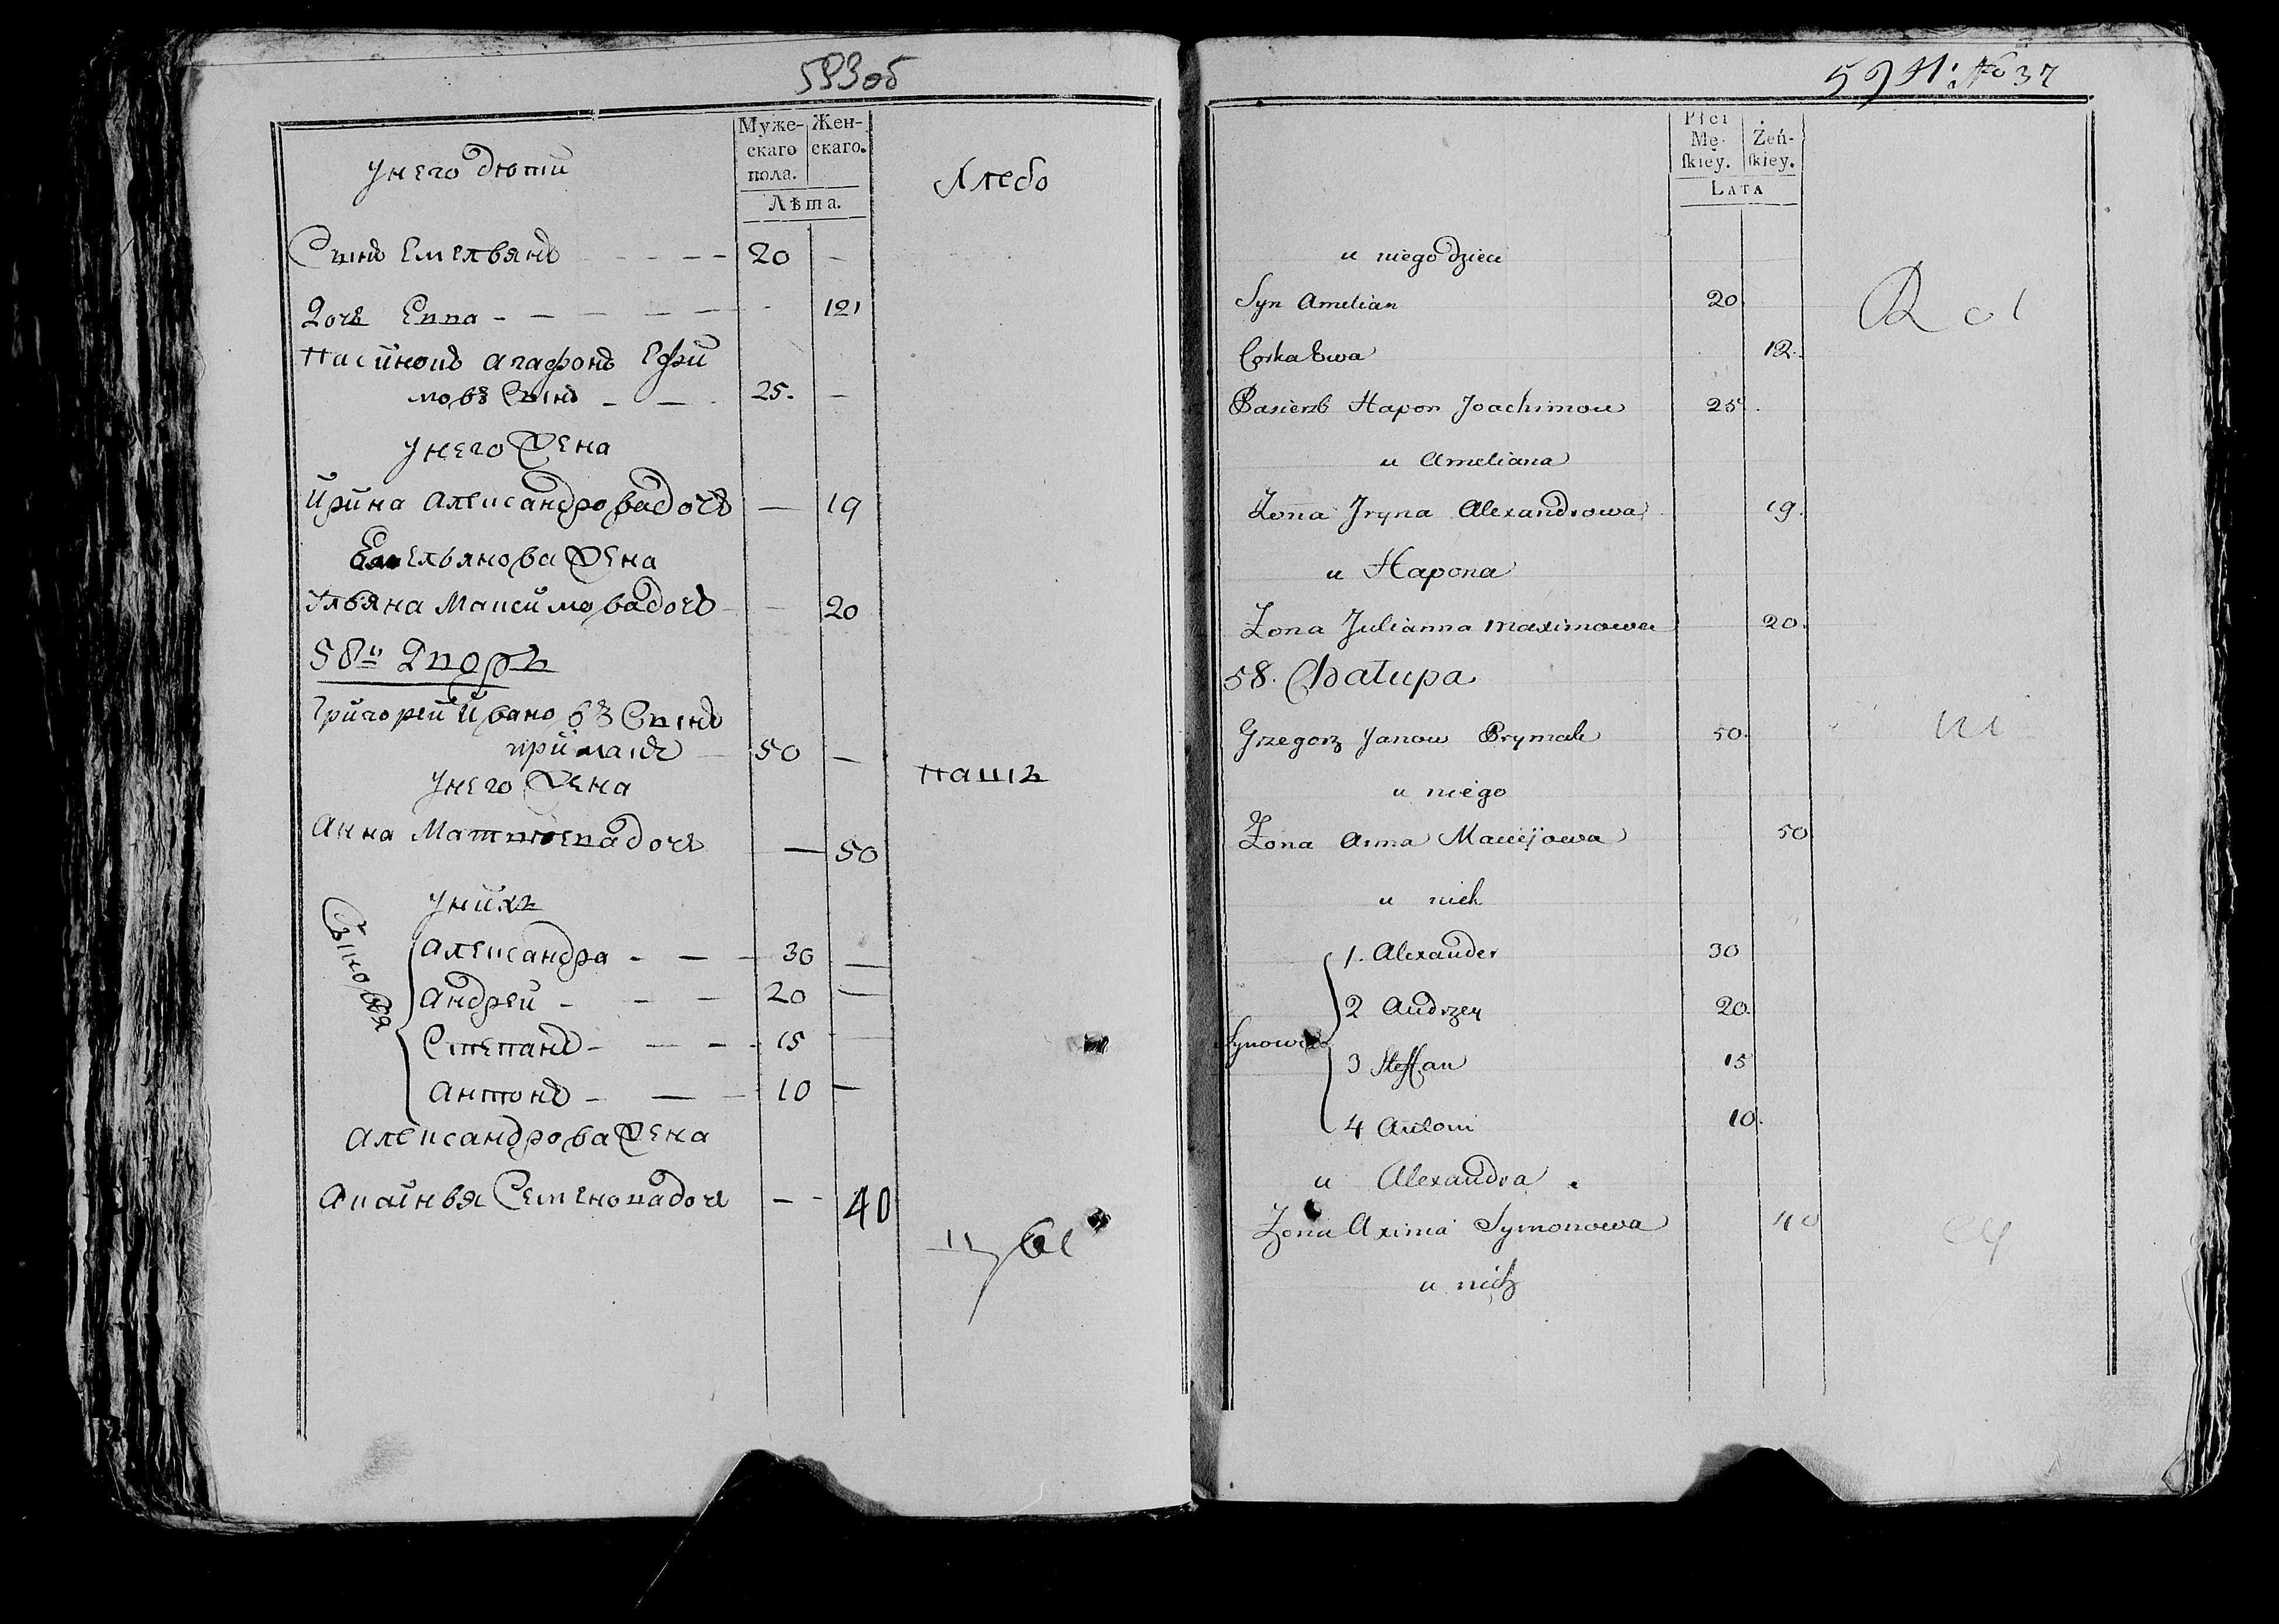 593об
Муже-
скаго
пола.
Жен-
скаго.
Лѣта.
У него дѣти
Хлебо
Сынъ Емельянъ - - - - 20 -
Дочь Евва - - - - - - - 12
Пасинокъ Агафонъ Ефи
мовъ Сынъ - - 25. -
У него Жена
Ирина Александрова дочь - 19
Емельянова Жена
Ульяна Максимова дочь - 20
58й Дворъ
Григорей Ивановъ Сынъ
примакъ 50 -
У него Жена
пашъ
Анна Матвѣева дочь - 50
У нихъ
Сыновья
Александра - - - 30 -
Андрей - - - 20 -
Степанъ - - - - 15 -
Антонъ - - - 10 -
Александрова Жена
Аксинья Семенова дочь - - 40
594 № 37
Płci
Mę-
ſkiey.
Żeń-
ſkiey.
Lata
u niego dzieci
Syn Amelian 20.
Corka Ewa 12.
Pasierzb Hapon Joachimow 25.
u Ameliana
Żona Jryna Alexandrowa 19.
u Hapona
Żona Julianna Maximowa 20.
58. Chałupa
Grzegorz Janow Prymak 50.
u niego
Żona Anna Maciejowa 50
u nich
Synowie
1. Alexander 30
2 Andrzey 20.
3 Steffan 15
4 Antoni 10.
u Alexandra
Żona Axinia Symonowa 40
u nich